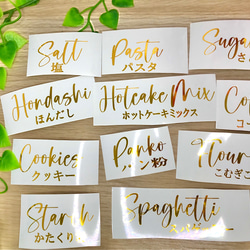 Salt
塩
Pasta
パスタ
Suga
さ
Hondashi
ほんだし
Hotcake Mix
ホットケーキミックス
Co
コー
Cookies
クッキー
Panko
パン粉
Flour
こむぎこ
Starch
かたくり
Spaghetti